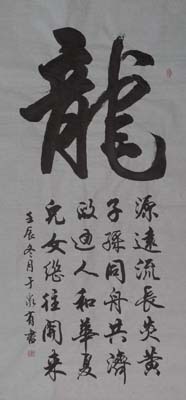 龍
源遠流長炎黃
子孫同舟共濟
政通人和華夏
兒女繼往開來
壬辰冬月于